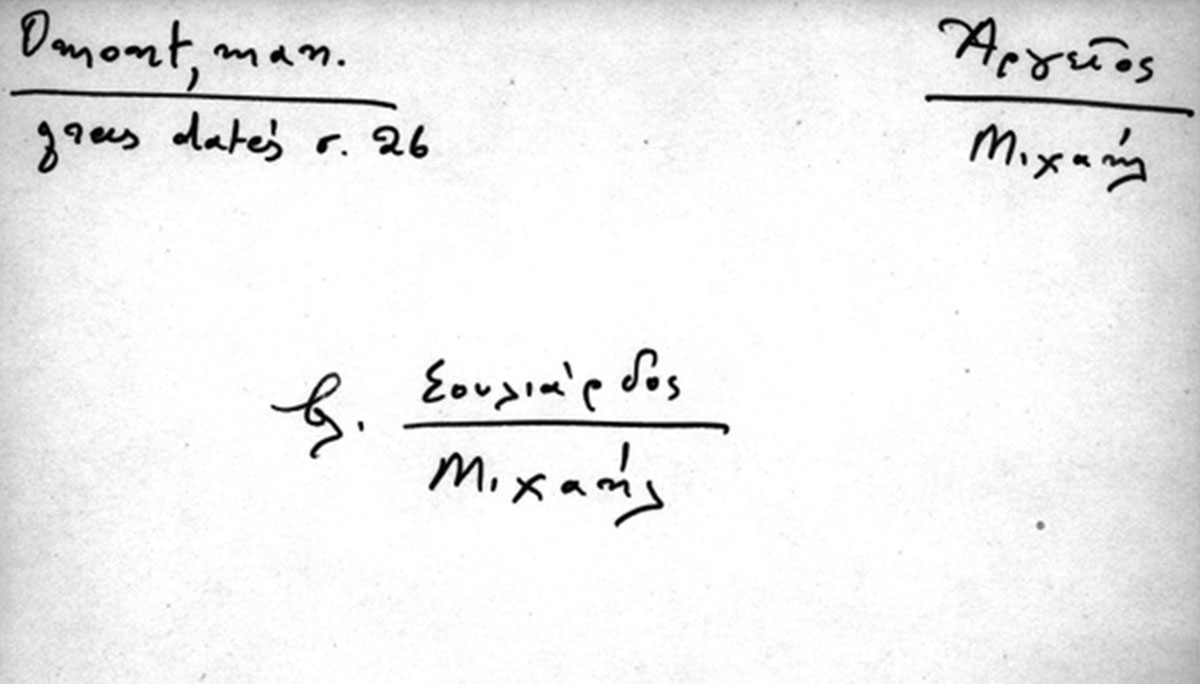 Omont, man.
grecs datés σ. 26
Ἀργεῖος
Μιχαήλ
βλ. Σουλιάρδος
Μιχαήλ